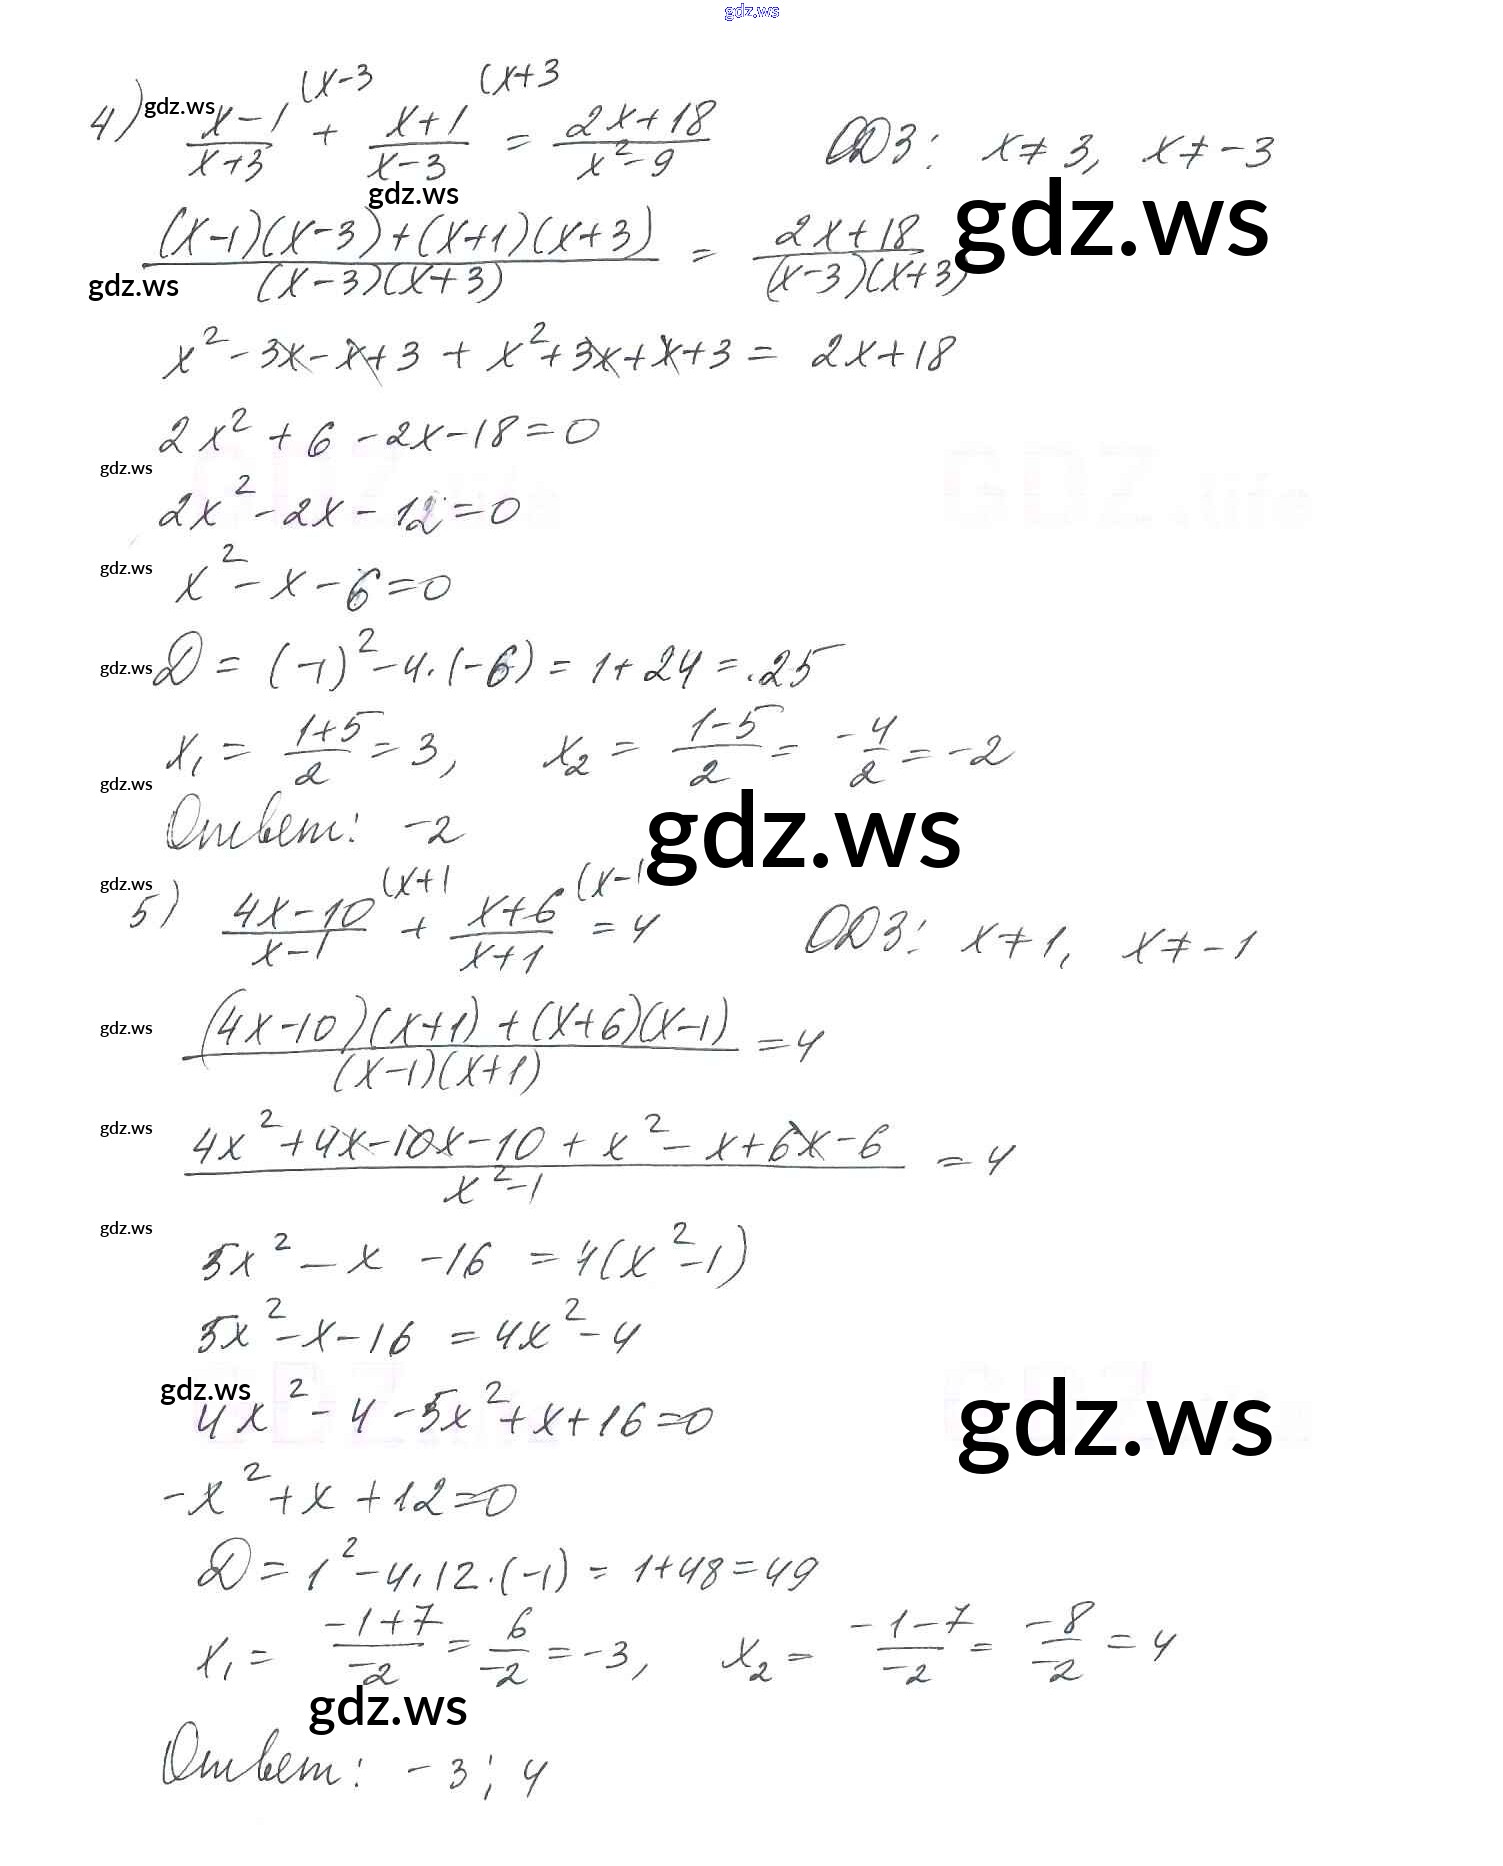 gdz.ws
4) (x-1)/(x+3) (x-3 + (x+1)/(x-3) (x+3 = (2x+18)/(x²-9) ОДЗ: x≠3, x≠-3
gdz.ws
gdz.ws
((x-1)(x-3)+(x+1)(x+3))/((x-3)(x+3)) = (2x+18)/((x-3)(x+3)) gdz.ws
gdz.ws
x²-3x-x+3+x²+3x+x+3=2x+18
2x²+6-2x-18=0
gdz.ws
2x²-2x-12=0
gdz.ws x²-x-6=0
gdz.ws D=(-1)²-4·(-6)=1+24=25
x₁=(1+5)/2=3, x₂=(1-5)/2=-4/2=-2
gdz.ws
Ответ: -2 gdz.ws
gdz.ws
5) (4x-10)/(x-1) (x+1 + (x+6)/(x+1) (x-1 =4 ОДЗ: x≠1, x≠-1
gdz.ws ((4x-10)(x+1)+(x+6)(x-1))/((x-1)(x+1))=4
gdz.ws (4x²+4x-10x-10+x²-x+6x-6)/(x²-1)=4
gdz.ws
5x²-x-16=4(x²-1)
5x²-x-16=4x²-4
gdz.ws
4x²-4-5x²+x+16=0 gdz.ws
-x²+x+12=0
D=1²-4·12·(-1)=1+48=49
x₁=(-1+7)/(-2)=6/(-2)=-3, x₂=(-1-7)/(-2)=(-8)/(-2)=4
gdz.ws
Ответ: -3; 4